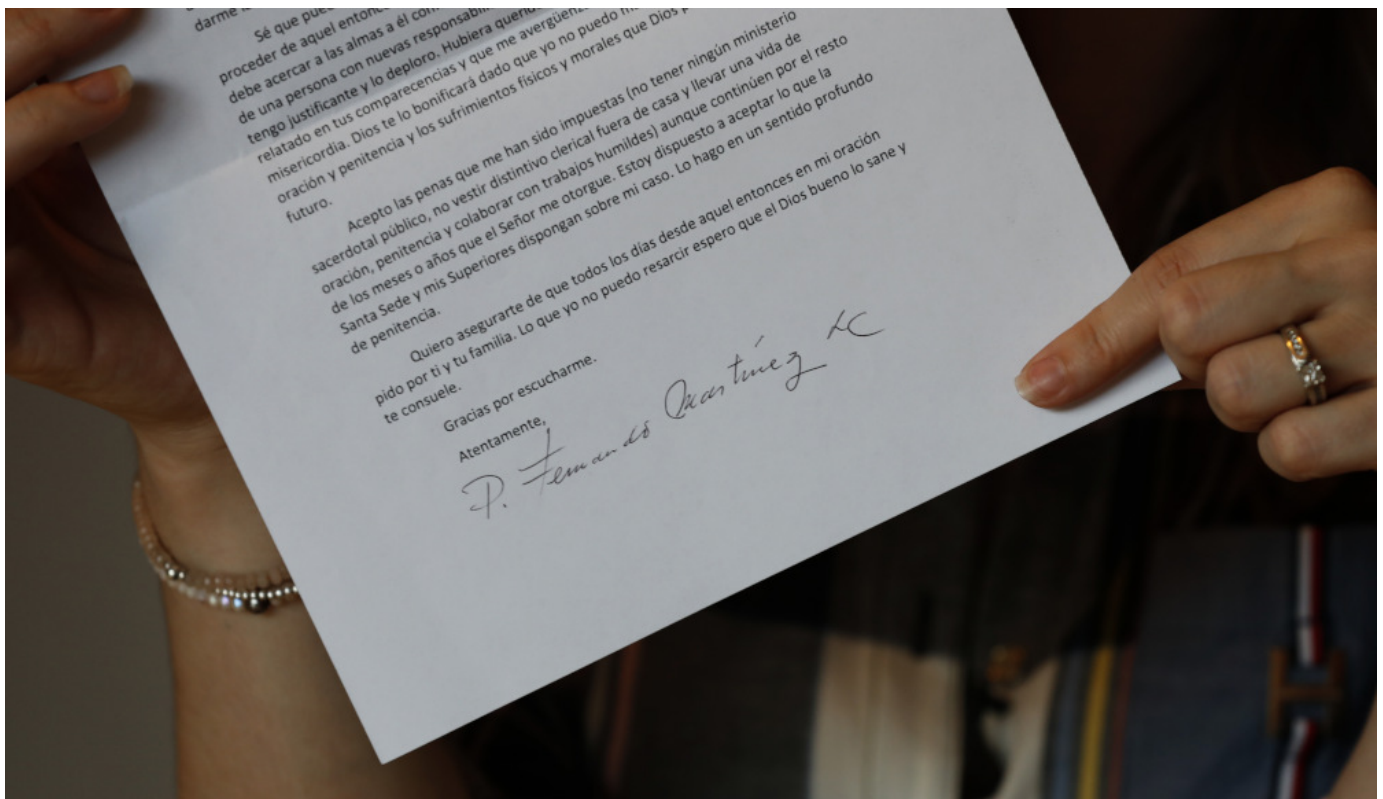 darme
Sé que pue
proceder de aquel entonc
debe acercar a las almas a él con
de una persona con nuevas responsabili
tengo justificante y lo deploro. Hubiera queri
relatado en tus comparecencias y que me avergüenz
misericordia. Dios te lo bonificará dado que yo no puedo
oración y penitencia y los sufrimientos físicos y morales que Dios
futuro.
Acepto las penas que me han sido impuestas (no tener ningún ministerio
sacerdotal público, no vestir distintivo clerical fuera de casa y llevar una vida de
oración, penitencia y colaborar con trabajos humildes) aunque continúen por el resto
de los meses o años que el Señor me otorgue. Estoy dispuesto a aceptar lo que la
Santa Sede y mis Superiores dispongan sobre mi caso. Lo hago en un sentido profundo
de penitencia.
Quiero asegurarte de que todos los días desde aquel entonces en mi oración
pido por ti y tu familia. Lo que yo no puedo resarcir espero que el Dios bueno lo sane y
te consuele.
Gracias por escucharme.
Atentamente,
P. Fernando Martínez LC